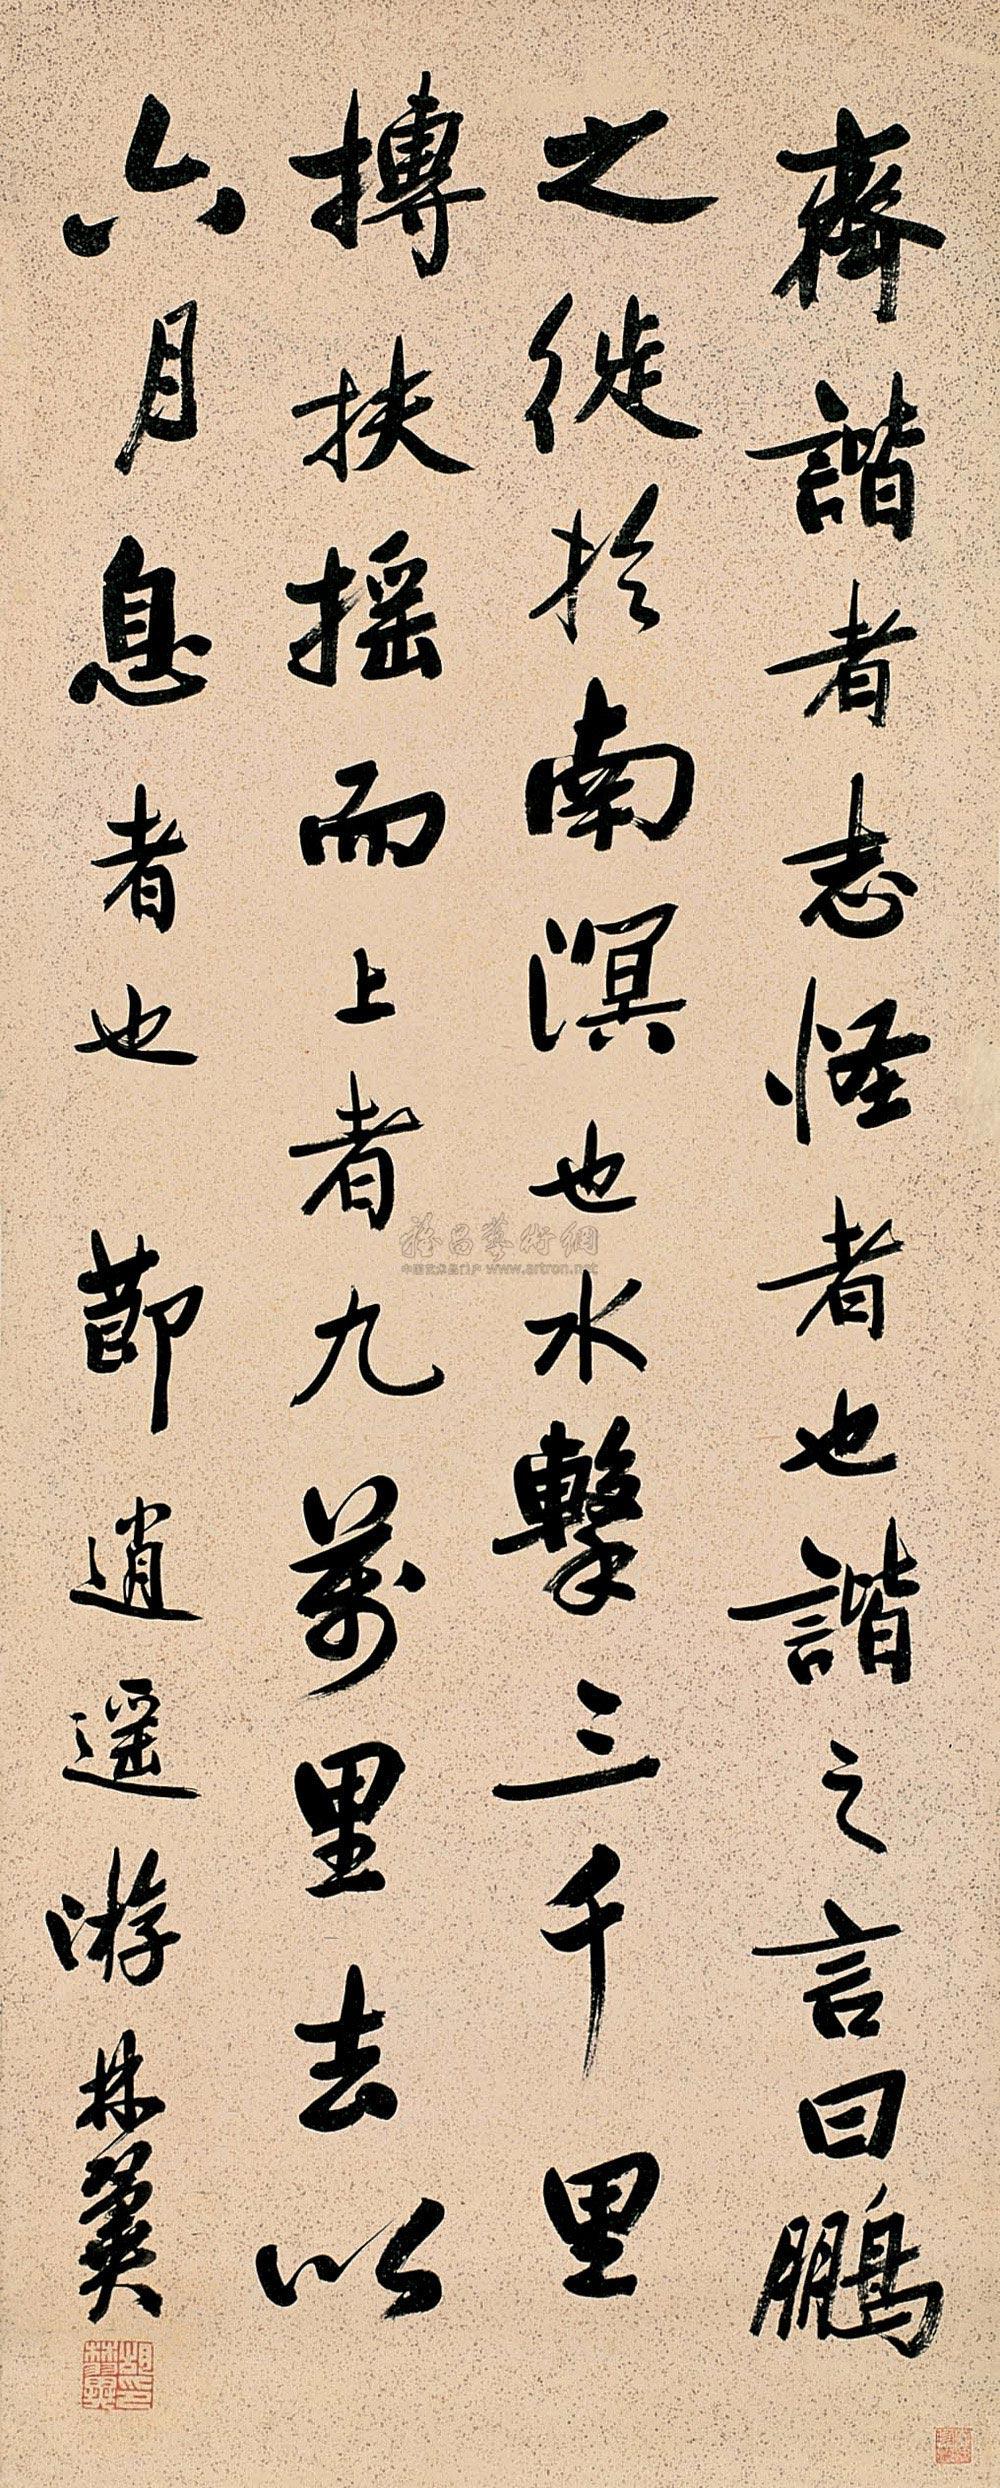 齊諧者志怪者也諧之言曰鵬
之徙於南溟也水擊三千里
摶扶摇而上者九萬里去以
六月息者也 節逍遥游 林翼
雅昌藝術網
中国艺术品门户 www.artron.net